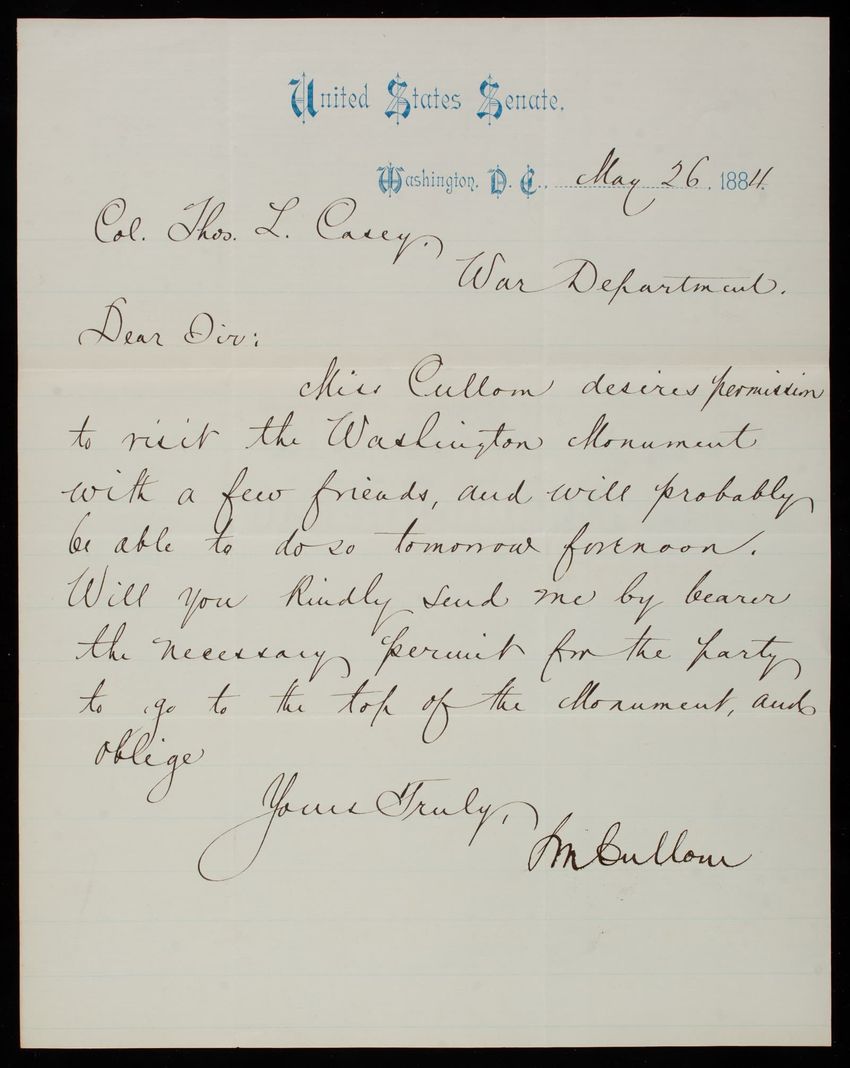 United States Senate.
Washington, D. C., May 26, 1884.
Col. Thos. L. Casey,
War Department.
Dear Sir:
Miss Cullom desires permission
to visit the Washington Monument
with a few friends, and will probably
be able to do so tomorrow forenoon.
Will you kindly send me by bearer
the necessary permit for the party
to go to the top of the Monument, and
oblige
Yours Truly,
S M Cullom